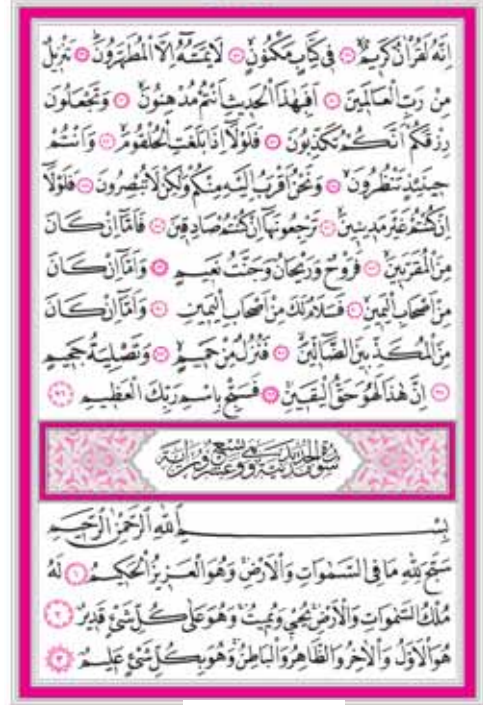 اِنَّهُ لَقُرْاٰنٌ كَرٖيمٌۙ ﴿٧٧﴾ فٖى كِتَابٍ مَكْنُونٍۙ ﴿٧٨﴾ لَا يَمَسُّهُٓ اِلَّا الْمُطَهَّرُونَۜ ﴿٧٩﴾ تَنْزٖيلٌ
مِنْ رَبِّ الْعَالَمٖينَ ﴿٨٠﴾ اَفَبِهٰذَا الْحَدٖيثِ اَنْتُمْ مُدْهِنُونَۙ ﴿٨١﴾ وَتَجْعَلُونَ
رِزْقَكُمْ اَنَّكُمْ تُكَذِّبُونَ ﴿٨٢﴾ فَلَوْلَٓا اِذَا بَلَغَتِ الْحُلْقُومَۙ ﴿٨٣﴾ وَاَنْتُمْ
حٖينَئِذٍ تَنْظُرُونَۙ ﴿٨٤﴾ وَنَحْنُ اَقْرَبُ اِلَيْهِ مِنْكُمْ وَلٰكِنْ لَا تُبْصِرُونَ ﴿٨٥﴾ فَلَوْلَٓا
اِنْ كُنْتُمْ غَيْرَ مَدٖينٖينَۙ ﴿٨٦﴾ تَرْجِعُونَهَٓا اِنْ كُنْتُمْ صَادِقٖينَ ﴿٨٧﴾ فَاَمَّٓا اِنْ كَانَ
مِنَ الْمُقَرَّبٖينَۙ ﴿٨٨﴾ فَرَوْحٌ وَرَيْحَانٌ وَجَنَّتُ نَعٖيمٍ ﴿٨٩﴾ وَاَمَّٓا اِنْ كَانَ
مِنْ اَصْحَابِ الْيَمٖينِۙ ﴿٩٠﴾ فَسَلَامٌ لَكَ مِنْ اَصْحَابِ الْيَمٖينِ ﴿٩١﴾ وَاَمَّٓا اِنْ كَانَ
مِنَ الْمُكَذِّبٖينَ الضَّٓالّٖينَۙ ﴿٩٢﴾ فَنُزُلٌ مِنْ حَمٖيمٍۙ ﴿٩٣﴾ وَتَصْلِيَةُ جَحٖيمٍ
﴿٩٤﴾ اِنَّ هٰذَا لَهُوَ حَقُّ الْيَقٖينِۚ ﴿٩٥﴾ فَسَبِّحْ بِاسْمِ رَبِّكَ الْعَظٖيمِ ﴿٩٦﴾
سُورَةُ الْحَدٖيدِ مَدَنِيَّةٌ وَهِىَ تِسْعٌ وَعِشْرُونَ اٰيَةً
بِسْمِ اللّٰهِ الرَّحْمٰنِ الرَّحٖيمِ
سَبَّحَ لِلّٰهِ مَا فِى السَّمٰوَاتِ وَالْاَرْضِۚ وَهُوَ الْعَزٖيزُ الْحَكٖيمُ ﴿١﴾ لَهُ
مُلْكُ السَّمٰوَاتِ وَالْاَرْضِۚ يُحْيٖى وَيُمٖيتُۚ وَهُوَ عَلٰى كُلِّ شَىْءٍ قَدٖيرٌ ﴿٢﴾
هُوَ الْاَوَّلُ وَالْاٰخِرُ وَالظَّاهِرُ وَالْبَاطِنُۚ وَهُوَ بِكُلِّ شَىْءٍ عَلٖيمٌ ﴿٣﴾